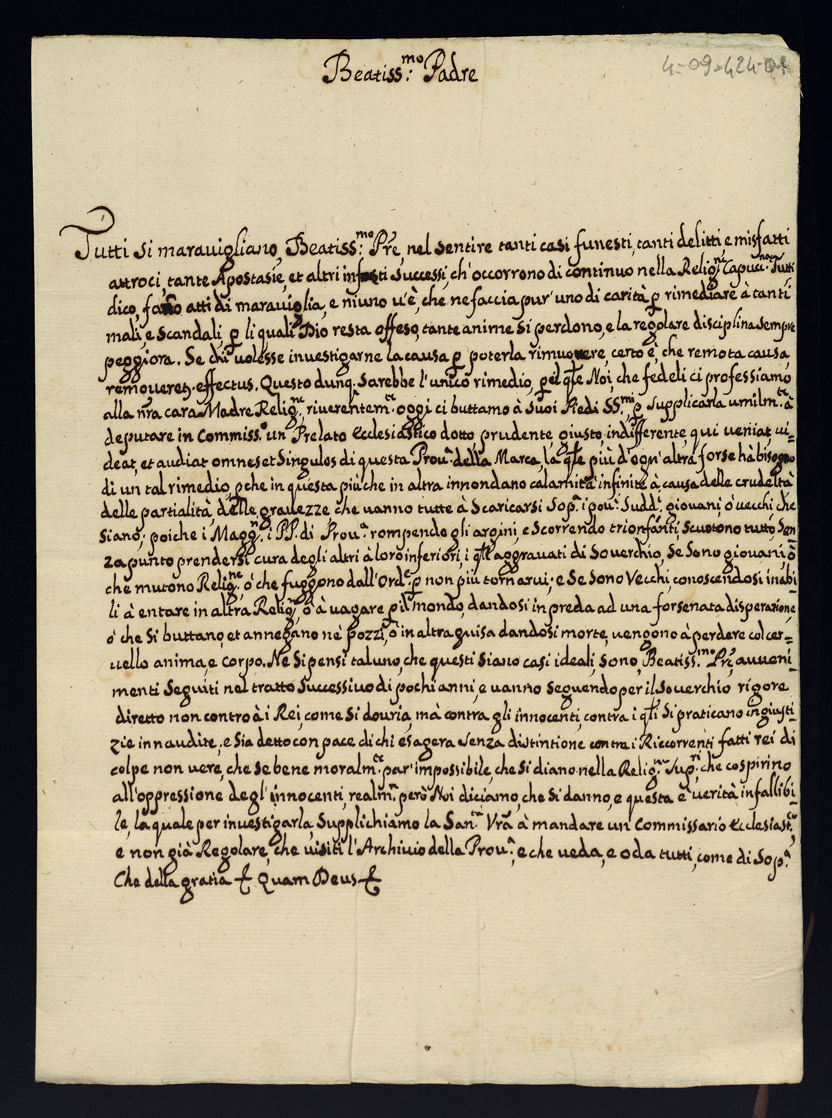 4-09-424-01
Beatiss:mo Padre
Tutti si marauigliano, Beatiss:mo Pre, nel sentire tanti casi funesti, tanti delitti, e misfatti
attroci, tante Apostasie, et altri infausti successi, ch'occorrono di continuo nella Relig:ne Capucc:na Tutti
dico, fanno atti di marauiglia, e niuno u'è, che ne faccia pur'uno di carità p rimediare à tanti
mali, e scandali, p li quali Dio resta offeso, tante anime si perdono, e la regolare disciplina sempre
peggiora. Se chi volesse inuestigarne la causa p poterla rimuouere, certo è, che remota causa,
remoueret.r effectus. Questo dunq. sarebbe l'unico rimedio, p il qle Noi, che fedeli ci professiamo
alla nra cara Madre Relig:ne, riuerentem:te oggi ci buttamo à suoi Piedi SS:mi p supplicarla umilm:te à
deputare in Commiss:o un'Prelato Ecclesiastico dotto prudente, giusto, indifferente, qui ueniat, ui-
deat, et audiat omnes et singulos di questa Prou:a della Marca, la qle più d'ogn'altra forse hà bisogno
di un tal rimedio, pche in questa più che in altra innondano calamità infinite à causa delle crudeltà
delle partialità, delle grauezze che vanno tutte à scaricarsi sop:a i pou:i Sudd:i, giouani, ò uecchi, che
siano; poiche i Magg:ri, i PP. di Prou:a rompendo gli argini, e scorrendo trionfanti, scuotono tutto sen-
za punto prendersi cura degli altri à loro inferiori, i qli aggrauati di souerchio, se sono giouani, ò
che mutono Relig:ne, ò che fuggono dall'Ord:e p non più tornarui; e se sono Vecchi, conoscendosi inabi-
li à entare in altra Relig:ne, ò à vagare p il mondo, dandosi in preda ad una forsenata disperazione,
ò che si buttano, et annegano nè pozzi, ò in altra guisa dandosi morte, uengono à perdere col cer-
uello anima, e corpo. Ne si pensi taluno, che questi siano casi ideali, sono, Beatiss:mo Pre, auueni-
menti seguiti nel tratto successiuo di pochi anni, e uanno seguendo per il souerchio rigore
diretto non contro à i Rei, come si douria, mà contra gli innocenti, contra i qli si praticano ingiusti-
zie innaudite; e sia detto con pace di chi esagera senza distintione contra i Riccorrenti fatti rei di
colpe non uere, che se bene moralm:te par'impossibile, che si diano nella Relig:ne Sup:ri, che cospirino
all'oppressione degl'innocenti, realm:te però Noi diciamo, che si danno, e questa è uerità infallibi-
le, la quale per inuestigarla, supplichiamo la San:tà Vra à mandare un Commissario Ecclesiast:co,
e non già Regolare, che uisiti l'Archiuio della Prou:a, e che ueda, e oda tutti, come di sop:a
Che della gratia &c Quam Deus &c